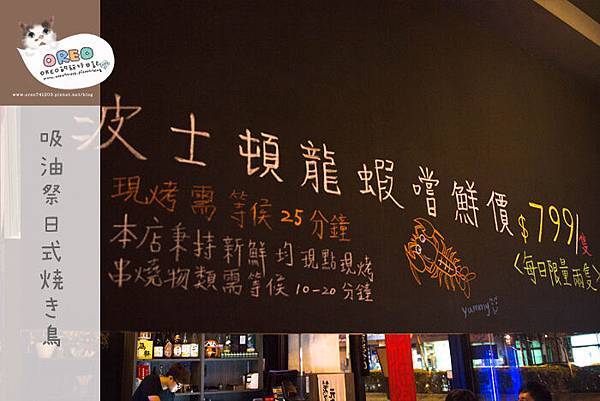 OREO
OREO的旅行日記
www.oreo741203.pixnet.net/blog
吸油祭日式燒き鳥
波士頓龍蝦嚐鮮價 $799/隻
現烤需等侯25分鐘
<每日限量兩隻>
本店秉持新鮮均現點現烤
串燒物類需等侯10-20分鐘
yummy